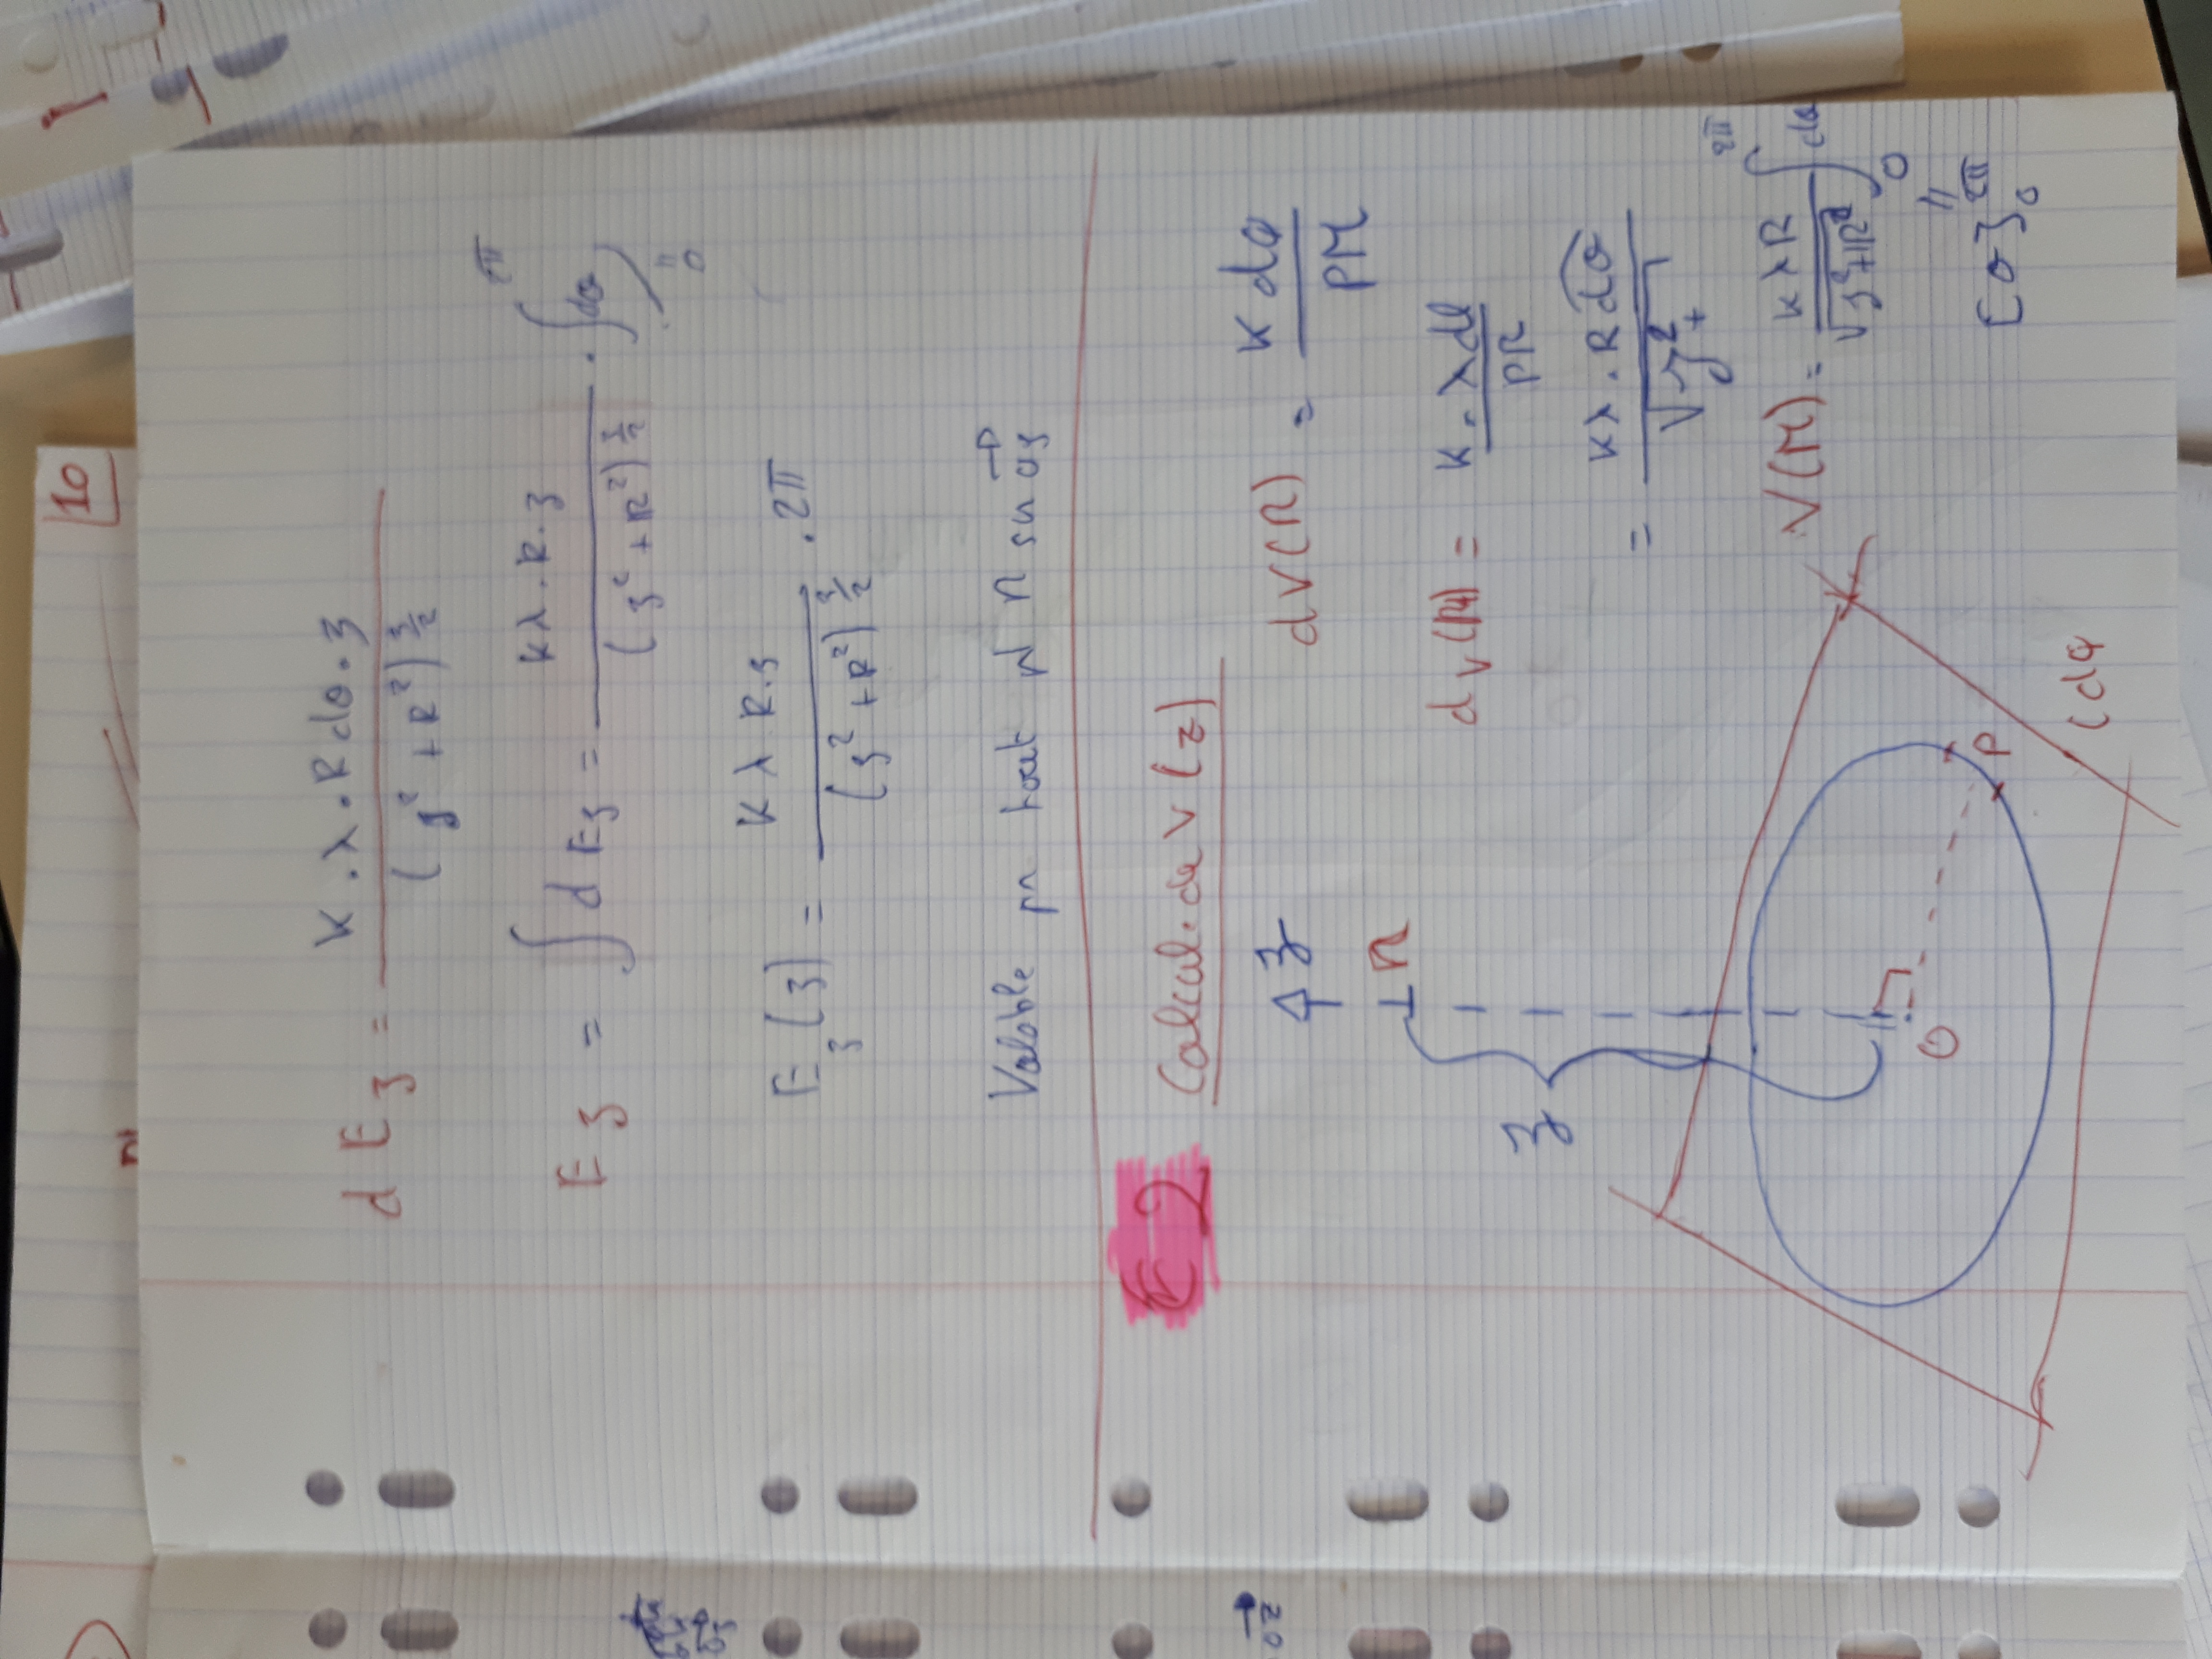 10
d E_z = K.λ.R dθ.z / (z² + R²)^{3/2}
E_z = ∫∫ d E_z = Kλ.R.z / (z² + R²)^{3/2} . ∫₀^{2π} dθ
E_z(z) = Kλ R.z / (z² + R²)^{3/2} . 2π
Valable pr tout pt M sur Oz
E2 Calcul de V(z)
z
M
z
O
P
(dq
dV(M) = K dq / PM
dV(M) = K.λdl / PM
= Kλ.R dθ / √z² +
V(M) = KλR / √z²+R² ∫₀^{2π} dθ
[θ]₀^{2π}